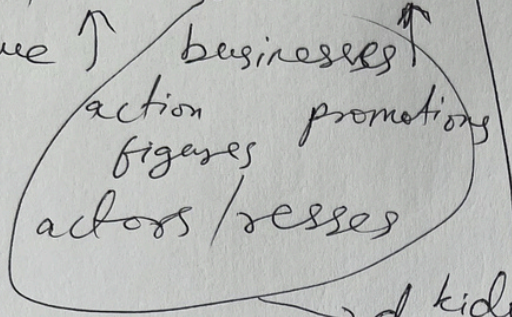 ue ↑ businesses ↑
action promotions
figures
actors/resses
d kids